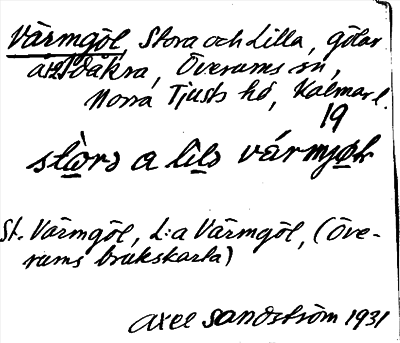 Värmgöl, Stora och Lilla, gölar
åt Dåkra, Överums sn,
Norra Tjusts hd, Kalmar l.
19
stòrɔ a lilɔ vármjøk
St. Värmgöl, L:a Värmgöl, (Öve-
rums brukskarta)
Axel Sandström 1931